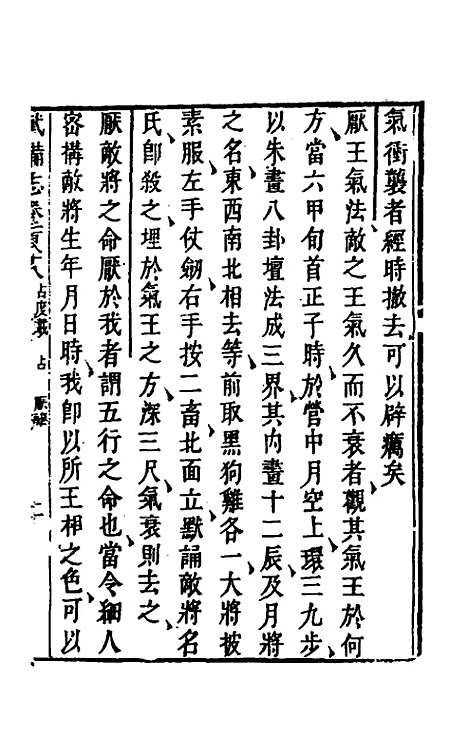 氣衝襲者經時撤去可以辟癘矣
厭王氣法敵之王氣久而不衰者觀其氣王於何
方當六甲旬首正子時於營中月空上環三九步
以朱畫八卦壇法成三界其内畫十二辰及月將
之名東西南北相去等前取黑狗雞各一大將披
素服左手仗劒右手按二畜北面立默誦敵將名
氏卽殺之埋於氣王之方深三尺氣衰則去之
厭敵將之命厭於我者謂五行之命也當令細人
密構敵將生年月日時我卽以所王相之色可以
武備志卷一百六十八 占度載 占 厭禳